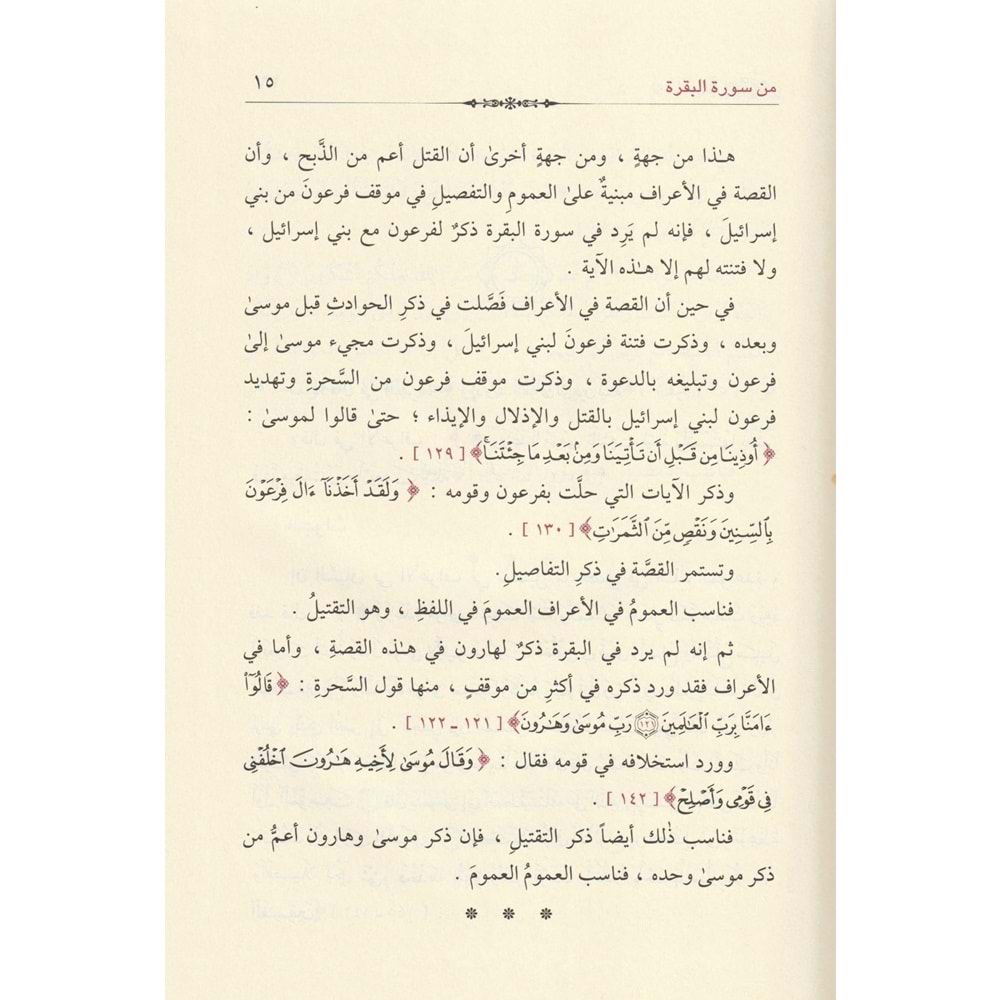 من سورة البقرة ١٥
هـٰذا من جهةٍ ، ومن جهةٍ أخرىٰ أن القتل أعم من الذَّبح ، وأن
القصة في الأعراف مبنيةٌ علىٰ العمومِ والتفصيلِ في موقف فرعونَ من بني
إسرائيلَ ، فإنه لم يَرِد في سورة البقرة ذكرٌ لفرعون مع بني إسرائيل ،
ولا فتنته لهم إلا هـٰذه الآية .
في حين أن القصة في الأعراف فَصَّلت في ذكرِ الحوادثِ قبل موسىٰ
وبعده ، وذكرت فتنة فرعونَ لبني إسرائيلَ ، وذكرت مجيء موسىٰ إلىٰ
فرعون وتبليغه بالدعوة ، وذكرت موقف فرعون من السَّحرةِ وتهديد
فرعون لبني إسرائيل بالقتل والإذلال والإيذاء ؛ حتىٰ قالوا لموسىٰ :
﴿ أُوذِينَا مِن قَبۡلِ أَن تَأۡتِيَنَا وَمِنۢ بَعۡدِ مَا جِئۡتَنَاۚ﴾ [ ١٢٩ ] .
وذكر الآيات التي حلَّت بفرعون وقومه : ﴿ وَلَقَدۡ أَخَذۡنَآ ءَالَ فِرۡعَوۡنَ
بِٱلسِّنِينَ وَنَقۡصٖ مِّنَ ٱلثَّمَرَٰتِ﴾ [ ١٣٠ ] .
وتستمر القصَّة في ذكرِ التفاصيلِ.
فناسب العمومُ في الأعراف العمومَ في اللفظِ ، وهو التقتيلُ .
ثم إنه لم يرد في البقرة ذكرٌ لهارون في هـٰذه القصةِ ، وأما في
الأعراف فقد ورد ذكره في أكثرِ من موقفٍ ، منها قول السَّحرةِ : ﴿ قَالُوٓاْ
ءَامَنَّا بِرَبِّ ٱلۡعَٰلَمِينَ ١٢١ رَبِّ مُوسَىٰ وَهَٰرُونَ﴾ [ ١٢١ ـ ١٢٢ ] .
وورد استخلافه في قومه فقال : ﴿ وَقَالَ مُوسَىٰ لِأَخِيهِ هَٰرُونَ ٱخۡلُفۡنِي
فِي قَوۡمِي وَأَصۡلِحۡ﴾ [ ١٤٢ ] .
فناسب ذٰلك أيضاً ذكر التقتيلِ ، فإن ذكر موسىٰ وهارون أعمُّ من
ذكر موسىٰ وحده ، فناسب العمومُ العمومَ .
* * *